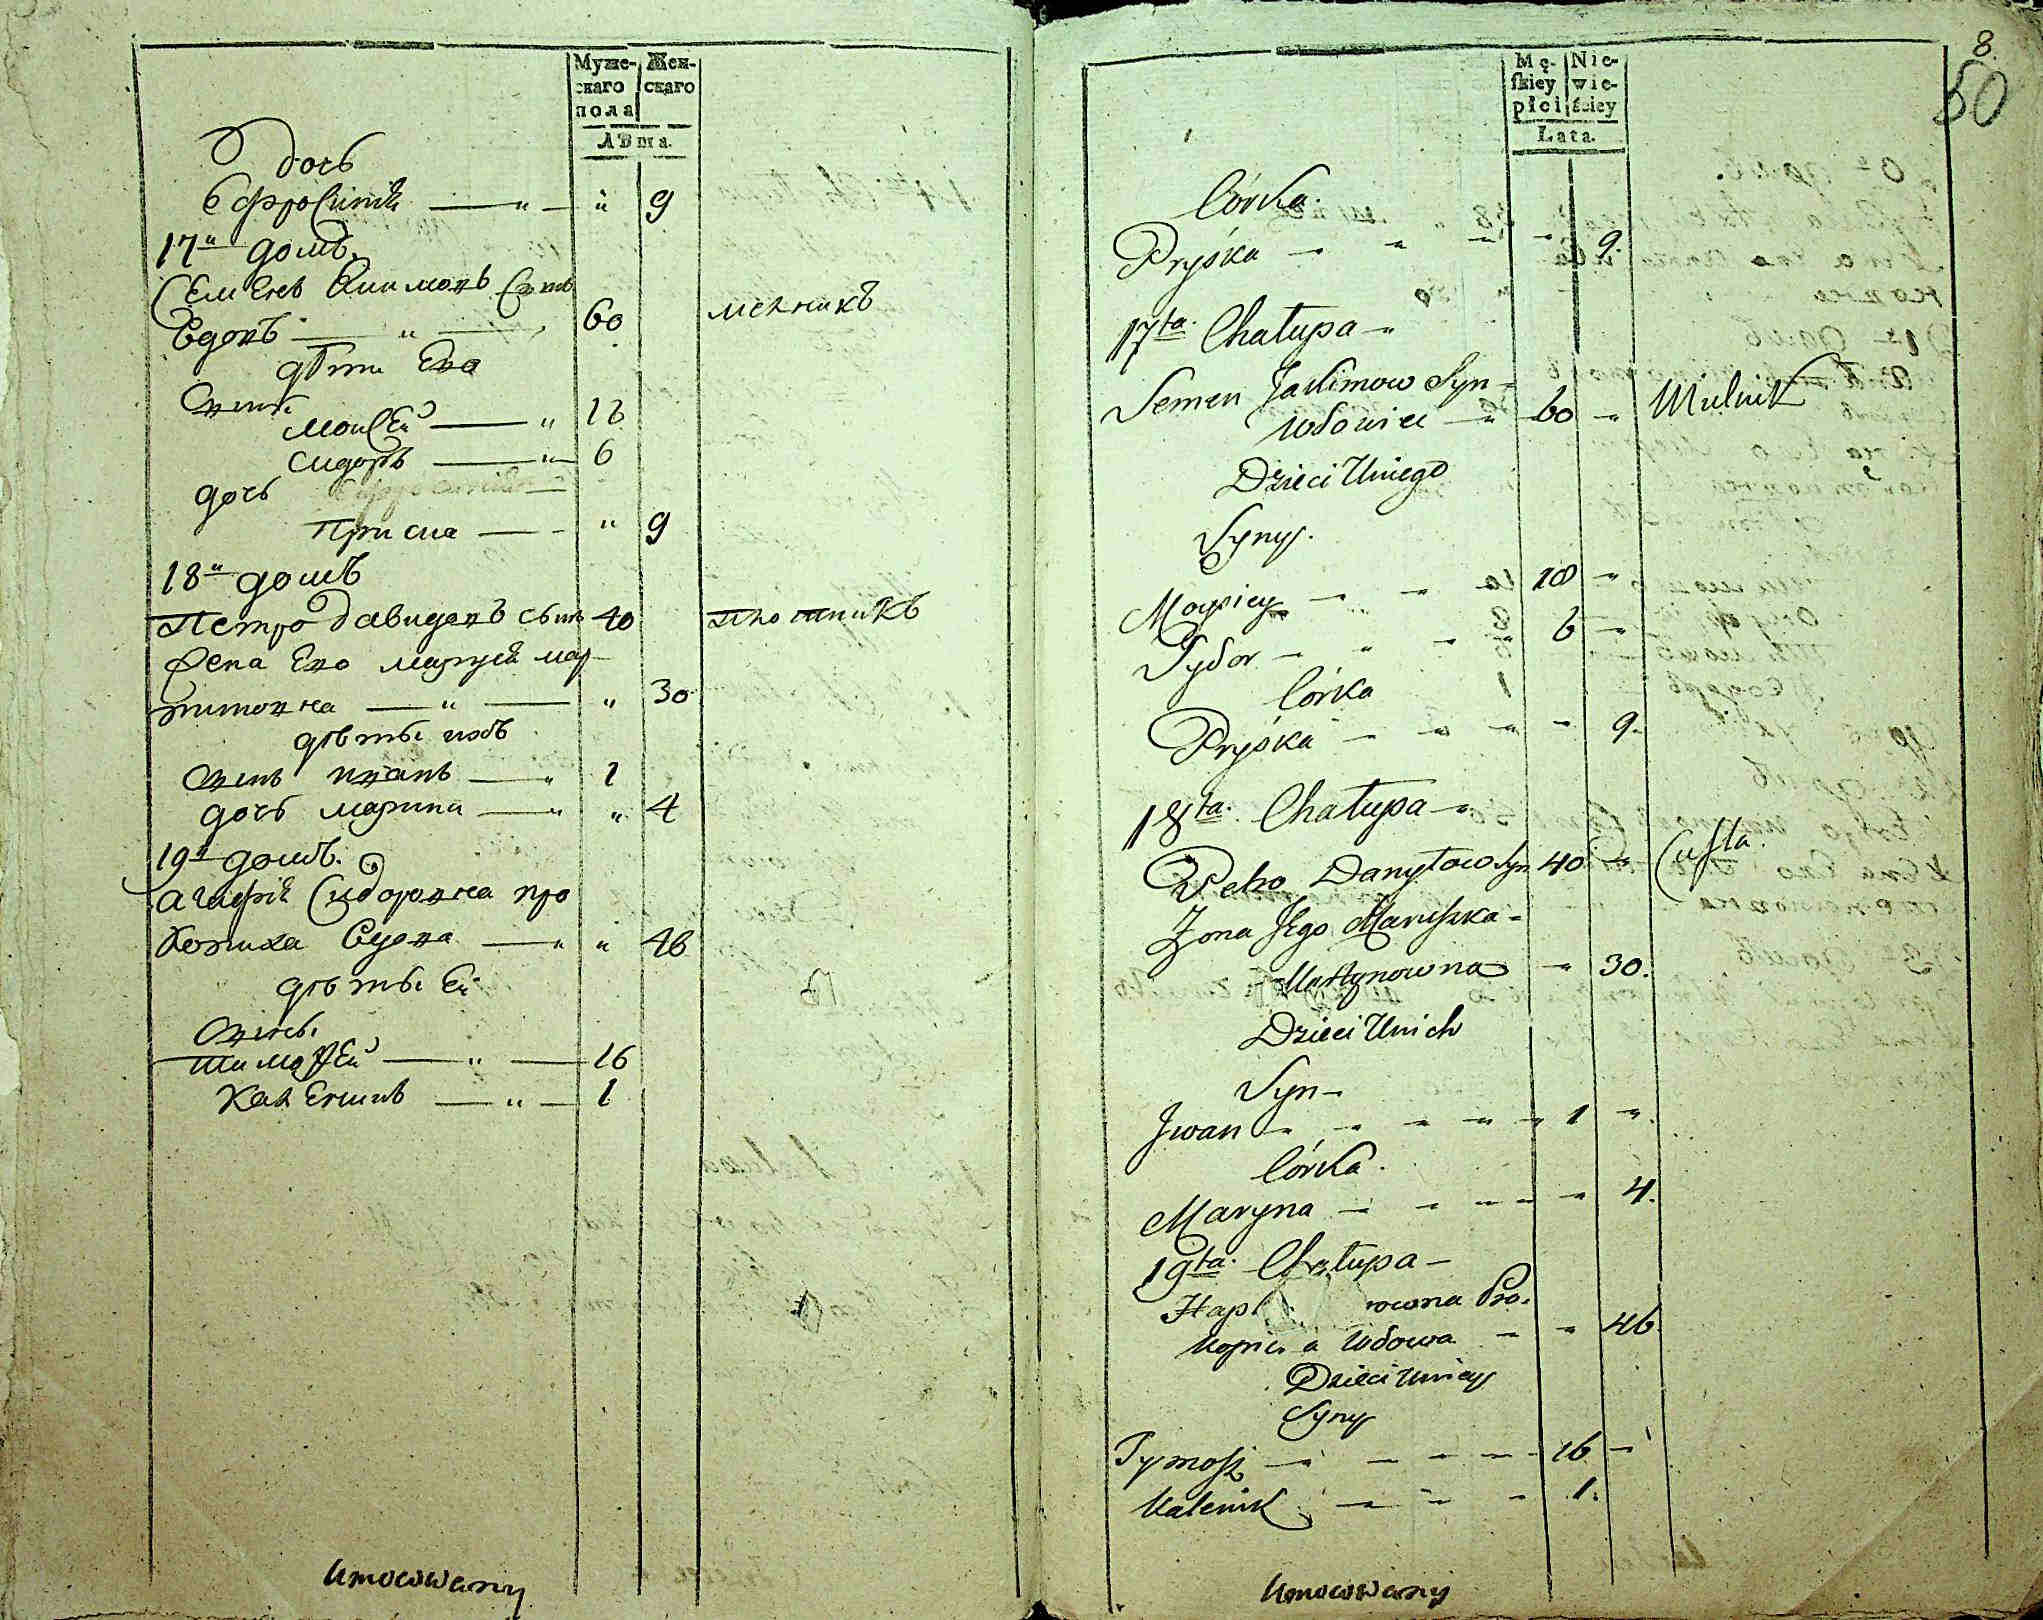 Муже-
скаго
пола
Жен-
скаго
Лѣта.
дочь
Ефросинія — " — " 9
17й домъ.
Семенъ Якимовъ сынъ
вдовъ — " — 60 мелникъ
дѣти Его
сыни
Моисей — " 18
Сидоръ — " — 6
дочь
Приска — — " 9
18й домъ
Петро Давидовъ сынъ 40 плотникъ
Жена Его Маруся Мар-
тиновна — " — " 30
дѣты ихъ
сынъ иванъ — " 1
дочь марина — " " 4
19й домъ.
Агафія Сидоровна про
копиха вдова — " " 46
дѣты Еи
сыны
Тимофей — " — 16
Каленикъ — " — 1
Umocowany
8.
50
Mę-
skiey
płci
Nie-
wie-
ściey
Lata.
Córka.
Pryśka — " — — 9.
17ta. Chałupa —
Semen Jakimow Syn —
Wdowiec — 60 — Mielnik
Dzieci Uniego
Syny.
Moysiey — — 18 —
Sydor — " — 6 —
Córka
Pryśka — — " — 9.
18ta. Chałupa —
Petro Danyłow Syn 40 — Cieśla.
Żona Jego Maryszka —
Martynowna — 30.
Dzieci Unich
Syn —
Jwan — — — — — 1 —
Córka.
Maryna — — — — — 4.
19ta. Chałupa —
Hap rowna Pro-
kopic a Wdowa — — 46.
Dzieci Uniey
Syny
Tymosz — — — — 16 —
Kalenik — — — 1.
Umocowany